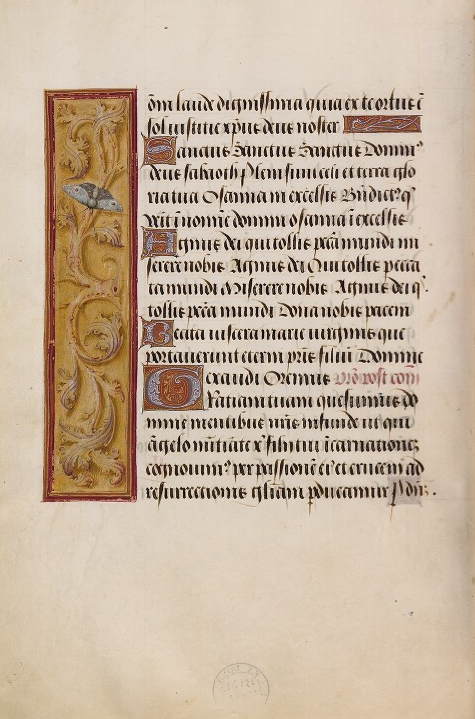 om̄ laude dignissima quia ex te ortus ē
sol iustitie xp̄us deus noster
Sanctus Sanctus Sanctus Domin⁹
deus sabaoth pleni sunt celi et terra glo
ria tua Osanna in excelsis Bn̄dict⁹ q̄
venit ī nomīe domini osanna ī excelsis
Agnus dei qui tollis pcc̄a mundi mi
serere nobis Agnus dei Qui tollis pecca
ta mundi Miserere nobis Agnus dei q̄
tollis pcc̄a mundi Dona nobis pacem
Beata uiscera marie uirginis que
portauerunt eterni pr̄is filiū Domine
exaudi Oremus post com̄
Gratiam tuam quesumus do
mine mentibus nr̄is infunde ut qui
āgelo nūtiāte xp̄i filii tui īcarnationeȝ
cognouim⁹ per passionē ei⁹ et crucem ad
resurrectionis gl̄iam pducamur p dn̄ȝ.